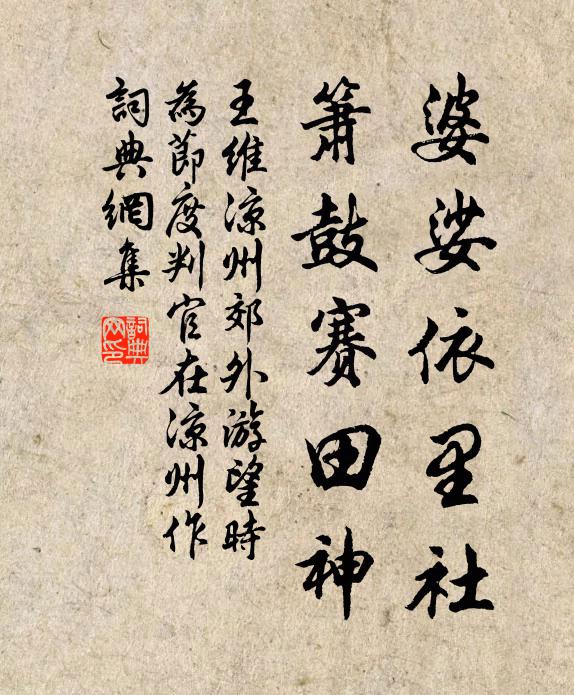 婆娑依里社
簫鼓賽田神
王維涼州郊外游望時
為節度判官在涼州作
詞典網集
詞典网印